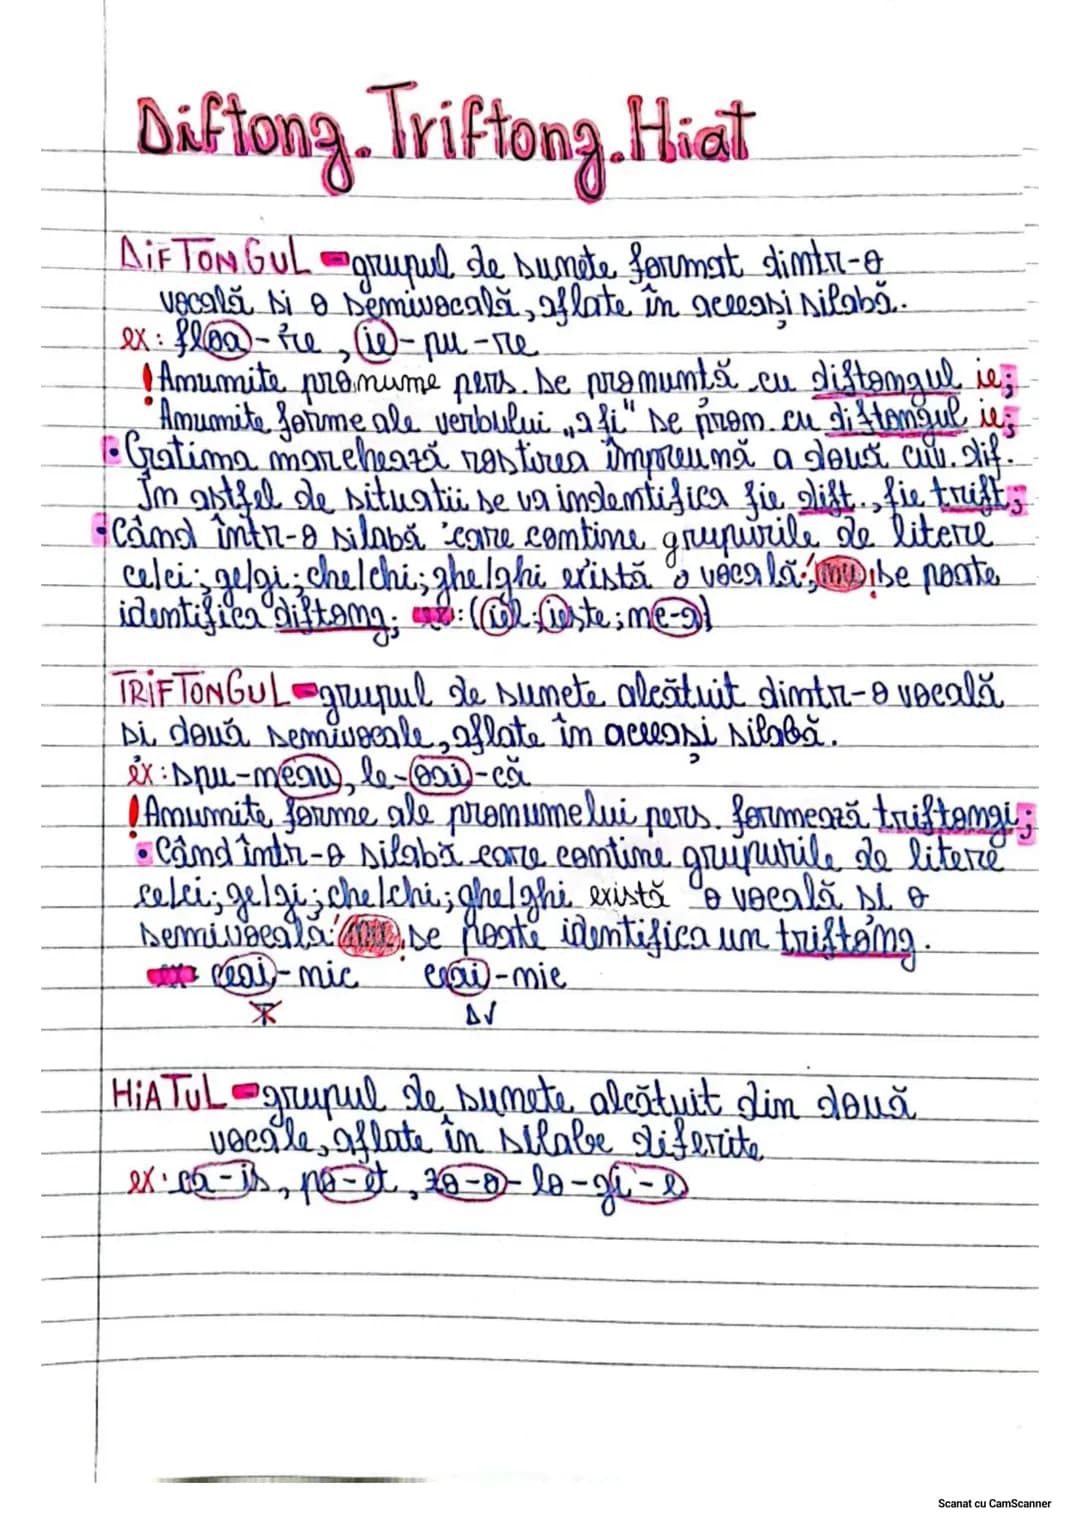 Diftong. Triftong. Hiat
DiFTONGUL - grupul de sunete format dintr-o
vocală si o semivocală, aflate în aceeași silabă.
ex: floa-re, ie-pu-re
! Anumite pronume pers. se pronunță cu diftongul ie;
Anumite forme ale verbului „a fi" se pron. cu diftongul ie;
• Cratima marchează rostirea împreună a două cuv. dif.
În astfel de situatii se va indentifica fie dift., fie trift;
• Când într-o silabă care contine grupurile de litere
ce/ci; ge/gi; che/chi; ghe/ghi există o vocală; nu se poate
identifica diftong; (iel; ieste; me-a)
TRIFTONGUL - grupul de sunete alcătuit dintr-o vocală
si două semivocale, aflate în aceeași silabă.
ex: spu-meau, le-oai-că
! Anumite forme ale pronumelui pers. formează triftongi;
• Când într-o silabă care contine grupurile de litere
ce/ci; ge/gi; che/chi; ghe/ghi există o vocală si o
semivocală nu se poate identifica un triftong.
ceai-nic ceai-nic
HiATUL - grupul de sunete alcătuit din două
vocale, aflate în silabe diferite
ex: ca-is, po-et, zo-o-lo-gi-e
Scanat cu CamScanner